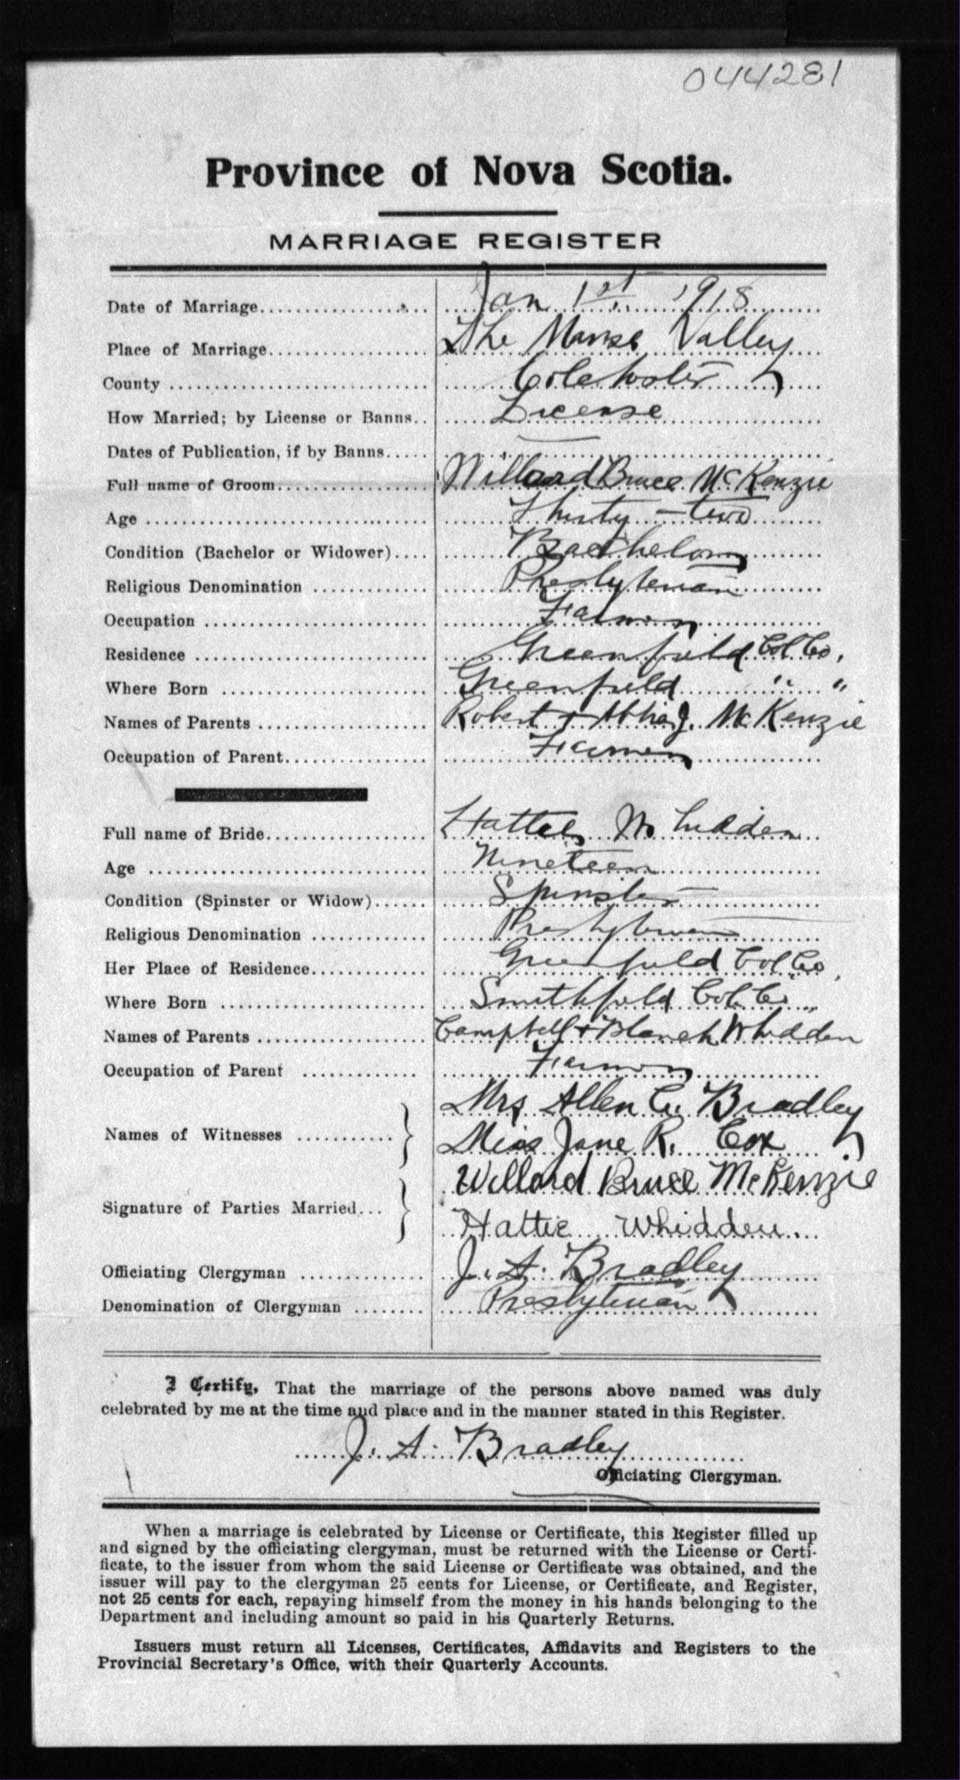 044281
Province of Nova Scotia.
MARRIAGE REGISTER
Date of Marriage Jan 1st 1918
Place of Marriage The Manse Valley
County Colchester
How Married; by License or Banns License
Dates of Publication, if by Banns
Full name of Groom Willard Bruce McKenzie
Age Thirty-two
Condition (Bachelor or Widower) Bachelor
Religious Denomination Presbyterian
Occupation Farmer
Residence Greenfield Col. Co,
Where Born Greenfield " "
Names of Parents Robert + J. McKenzie
Occupation of Parent Farmer
Full name of Bride Hattie Whidden
Age Nineteen
Condition (Spinster or Widow) Spinster
Religious Denomination Presbyterian
Her Place of Residence Greenfield Col. Co,
Where Born Smithfield Col. Co. "
Names of Parents Campbell + Blanch Whidden
Occupation of Parent Farmer
Mrs Allen G. Bradley
Names of Witnesses }
Miss Jane R. Cox
Willard Bruce McKenzie
Signature of Parties Married }
Hattie Whidden.
Officiating Clergyman J. A. Bradley
Denomination of Clergyman Presbyterian
I Certify, That the marriage of the persons above named was duly
celebrated by me at the time and place and in the manner stated in this Register.
J. A. Bradley
Officiating Clergyman.
When a marriage is celebrated by License or Certificate, this Register filled up
and signed by the officiating clergyman, must be returned with the License or Certi-
ficate, to the issuer from whom the said License or Certificate was obtained, and the
issuer will pay to the clergyman 25 cents for License, or Certificate, and Register,
not 25 cents for each, repaying himself from the money in his hands belonging to the
Department and including amount so paid in his Quarterly Returns.
Issuers must return all Licenses, Certificates, Affidavits and Registers to the
Provincial Secretary's Office, with their Quarterly Accounts.